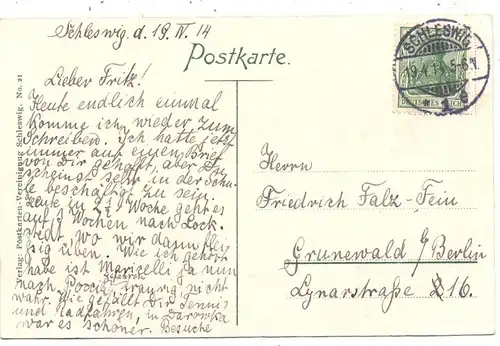 Schleswig. d. 19. IV. 14
Postkarte.
SCHLESWIG
19.4.14. 5-6 N.
DEUTSCHES REICH
Lieber Fritz!
Heute endlich einmal
komme ich wieder zum
Schreiben. Ich hatte jetzt
immer auf einen Brief
von Dir gehofft, aber Du
scheinst sehr in der Schu-
le beschäftigt zu sein.
Heute in Woche geht es
auf Wochen nach Lock.
stedt, wo wir dann
üben. Wie ich hört
habe ist ja nun
nach nicht
wahr. Wie gefällt Dir Tennis
und Radfahren, in
war es schöner. Besuche
Herrn
Friedrich Falz-Fein
Grunewald b/Berlin
Lynarstraße 16.
Verlag: Postkarten-Vereinigung Schleswig. No. 21